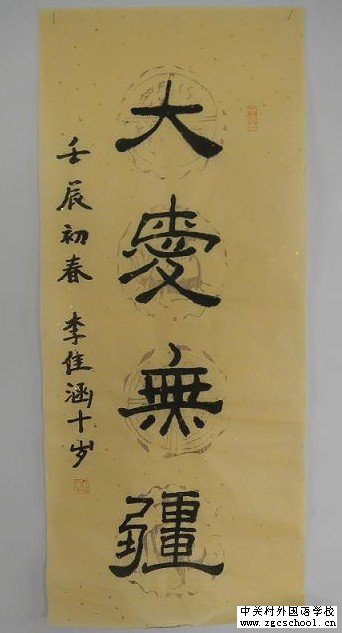 大愛無疆
壬辰初春 李佳涵十岁
中关村外国语学校
www.zgcschool.cn